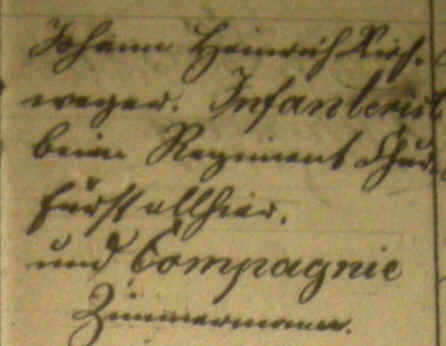 Johann Heinrich Kirch-
weger. Infanterist
beim Regiment Chur
fürst allhier.
und Compagnie
Zimmermann.